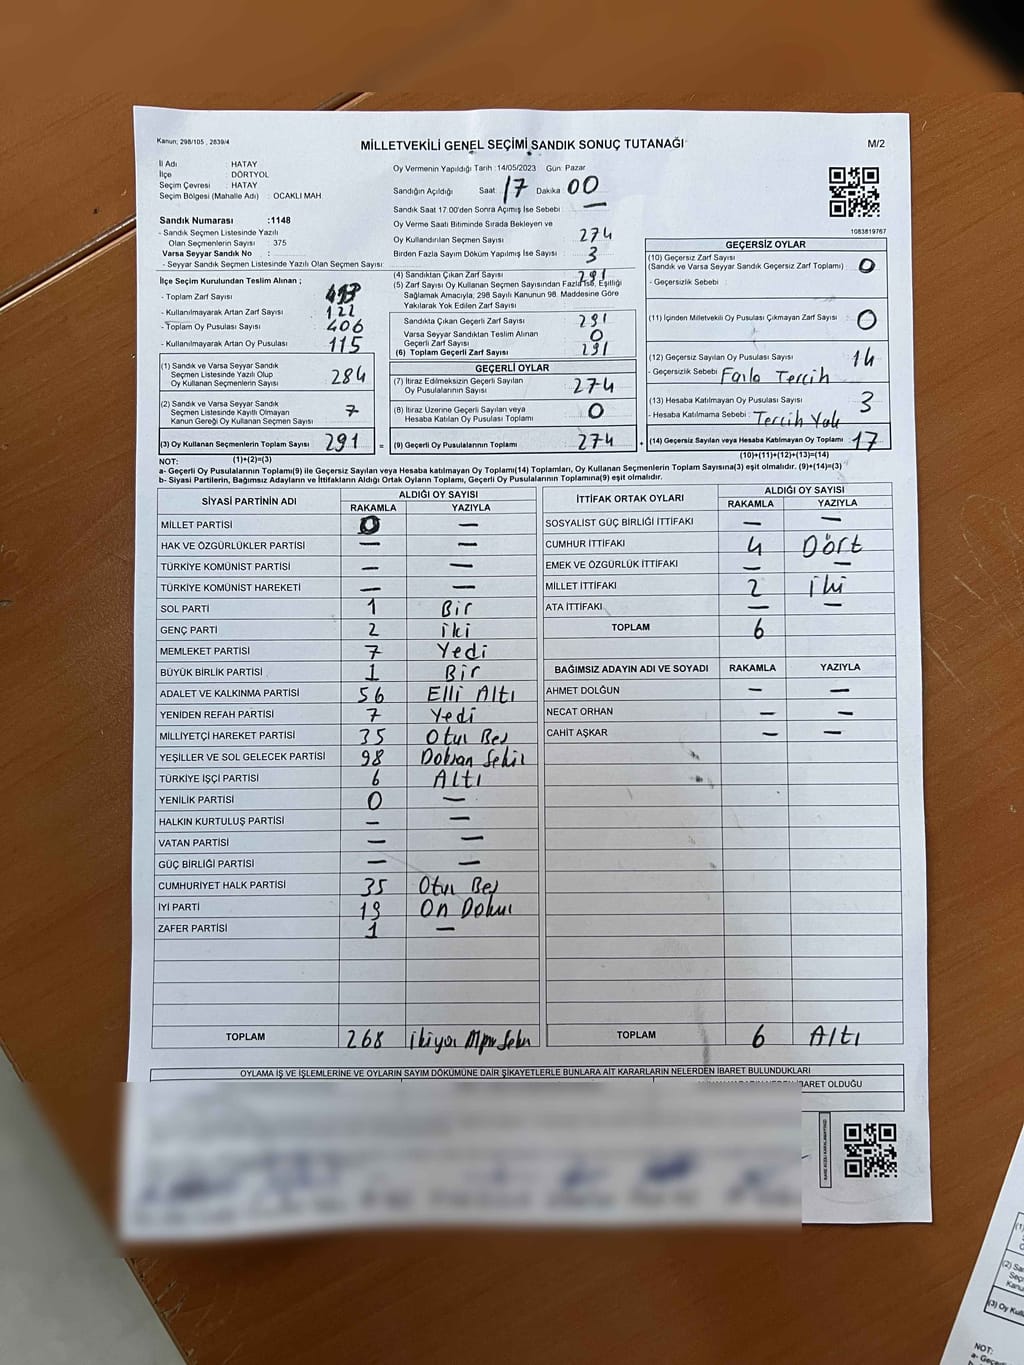 Kanun; 298/105 , 2839/4
MİLLETVEKİLİ GENEL SEÇİMİ SANDIK SONUÇ TUTANAĞI
M/2
İl Adı : HATAY
İlçe : DÖRTYOL
Seçim Çevresi : HATAY
Seçim Bölgesi (Mahalle Adı) : OCAKLI MAH.
Sandık Numarası :1148
- Sandık Seçmen Listesinde Yazılı
Olan Seçmenlerin Sayısı : 375
Varsa Seyyar Sandık No :
- Seyyar Sandık Seçmen Listesinde Yazılı Olan Seçmen Sayısı:
Oy Vermenin Yapıldığı Tarih :14/05/2023 Gün: Pazar
Sandığın Açıldığı Saat: 17 Dakika: 00
Sandık Saat 17.00'den Sonra Açımış İse Sebebi : —
Oy Verme Saati Bitiminde Sırada Bekleyen ve
Oy Kullandırılan Seçmen Sayısı : 274
Birden Fazla Sayım Döküm Yapılmış İse Sayısı : 3
1083819767
İlçe Seçim Kurulundan Teslim Alınan ;
- Toplam Zarf Sayısı :
- Kullanılmayarak Artan Zarf Sayısı : 122
- Toplam Oy Pusulası Sayısı : 406
- Kullanılmayarak Artan Oy Pusulası : 115
(1) Sandık ve Varsa Seyyar Sandık
Seçmen Listesinde Yazılı Olup
Oy Kullanan Seçmenlerin Sayısı 284
(2) Sandık ve Varsa Seyyar Sandık
Seçmen Listesinde Kayıtlı Olmayan
Kanun Gereği Oy Kullanan Seçmen Sayısı 7
(3) Oy Kullanan Seçmenlerin Toplam Sayısı 291
(1)+(2)=(3)
(4) Sandıktan Çıkan Zarf Sayısı : 291
(5) Zarf Sayısı Oy Kullanan Seçmen Sayısından Fazla İse, Eşitliği
Sağlamak Amacıyla; 298 Sayılı Kanunun 98. Maddesine Göre
Yakılarak Yok Edilen Zarf Sayısı :
Sandıkta Çıkan Geçerli Zarf Sayısı : 291
Varsa Seyyar Sandıktan Teslim Alınan
Geçerli Zarf Sayısı : 0
(6) Toplam Geçerli Zarf Sayısı : 291
GEÇERLİ OYLAR
(7) İtiraz Edilmeksizin Geçerli Sayılan
Oy Pusulalarının Sayısı : 274
(8) İtiraz Üzerine Geçerli Sayılan veya
Hesaba Katılan Oy Pusulası Toplamı : 0
= (9) Geçerli Oy Pusulalarının Toplamı : 274
GEÇERSİZ OYLAR
(10) Geçersiz Zarf Sayısı
(Sandık ve Varsa Seyyar Sandık Geçersiz Zarf Toplamı) : 0
- Geçersizlik Sebebi :
(11) İçinden Milletvekili Oy Pusulası Çıkmayan Zarf Sayısı : 0
(12) Geçersiz Sayılan Oy Pusulası Sayısı : 14
- Geçersizlik Sebebi : Fazla Tercih
(13) Hesaba Katılmayan Oy Pusulası Sayısı : 3
- Hesaba Katılmama Sebebi : Tercih Yok
+ (14) Geçersiz Sayılan veya Hesaba Katılmayan Oy Toplamı : 17
(10)+(11)+(12)+(13)=(14)
NOT:
a- Geçerli Oy Pusulalarının Toplamı(9) ile Geçersiz Sayılan veya Hesaba katılmayan Oy Toplamı(14) Toplamları, Oy Kullanan Seçmenlerin Toplam Sayısına(3) eşit olmalıdır. (9)+(14)=(3)
b- Siyasi Partilerin, Bağımsız Adayların ve İttifakların Aldığı Ortak Oyların Toplamı, Geçerli Oy Pusulalarının Toplamına(9) eşit olmalıdır.
SİYASİ PARTİNİN ADI ALDIĞI OY SAYISI
RAKAMLA YAZIYLA
MİLLET PARTİSİ 0 —
HAK VE ÖZGÜRLÜKLER PARTİSİ — —
TÜRKİYE KOMÜNİST PARTİSİ — —
TÜRKİYE KOMÜNİST HAREKETİ — —
SOL PARTİ 1 Bir
GENÇ PARTİ 2 iki
MEMLEKET PARTİSİ 7 Yedi
BÜYÜK BİRLİK PARTİSİ 1 Bir
ADALET VE KALKINMA PARTİSİ 56 Elli Altı
YENİDEN REFAH PARTİSİ 7 Yedi
MİLLİYETÇİ HAREKET PARTİSİ 35 Otuz Beş
YEŞİLLER VE SOL GELECEK PARTİSİ 98 Doksan Sekiz
TÜRKİYE İŞÇİ PARTİSİ 6 Altı
YENİLİK PARTİSİ 0 —
HALKIN KURTULUŞ PARTİSİ — —
VATAN PARTİSİ — —
GÜÇ BİRLİĞİ PARTİSİ — —
CUMHURİYET HALK PARTİSİ 35 Otuz Beş
İYİ PARTİ 19 On Dokuz
ZAFER PARTİSİ 1 —
TOPLAM 268 ikiyüz
İTTİFAK ORTAK OYLARI ALDIĞI OY SAYISI
RAKAMLA YAZIYLA
SOSYALİST GÜÇ BİRLİĞİ İTTİFAKI — —
CUMHUR İTTİFAKI 4 Dört
EMEK VE ÖZGÜRLÜK İTTİFAKI — —
MİLLET İTTİFAKI 2 iki
ATA İTTİFAKI — —
TOPLAM 6
BAĞIMSIZ ADAYIN ADI VE SOYADI RAKAMLA YAZIYLA
AHMET DOLĞUN — —
NECAT ORHAN — —
CAHİT AŞKAR — —
TOPLAM 6 Altı
OYLAMA İŞ VE İŞLEMLERİNE VE OYLARIN SAYIM DÖKÜMÜNE DAİR ŞİKAYETLERLE BUNLARA AİT KARARLARIN NELERDEN İBARET BULUNDUKLARI
İBARET OLDUĞU